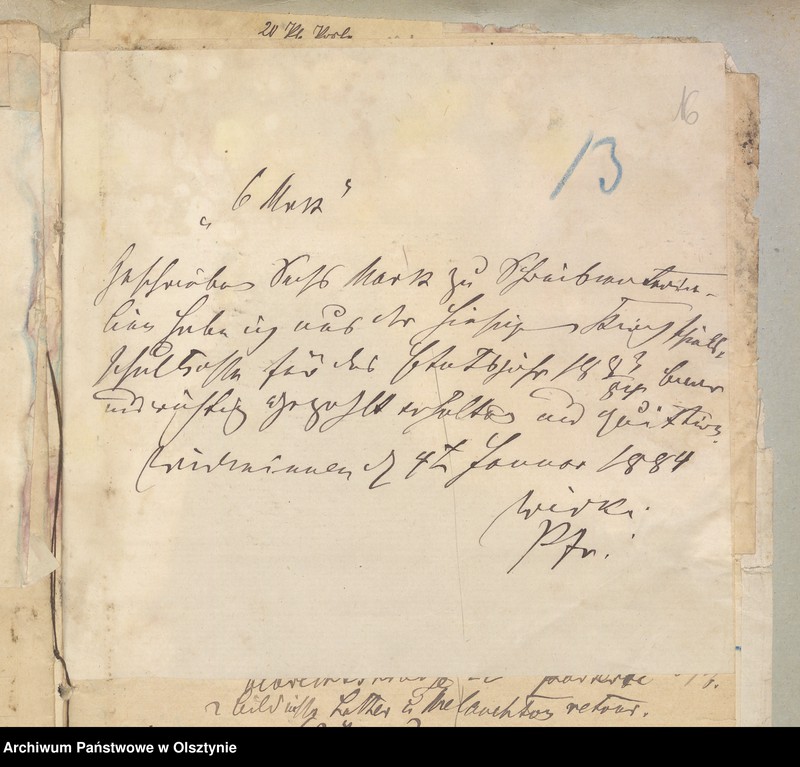 16
13
„6 Mrk“
Geschrieben Sechs Mark zu Schreibmateria-
lien habe ich aus der hiesigen Kirchspiels-
schulkasse für das Etatsjahr 1883/84 baar
und richtig gezahlt erhalten und quittire.
Widminnen d 4t Januar 1884
Pfr.
2 Bildnisse Luther u Melanchton retour.
Archiwum Państwowe w Olsztynie